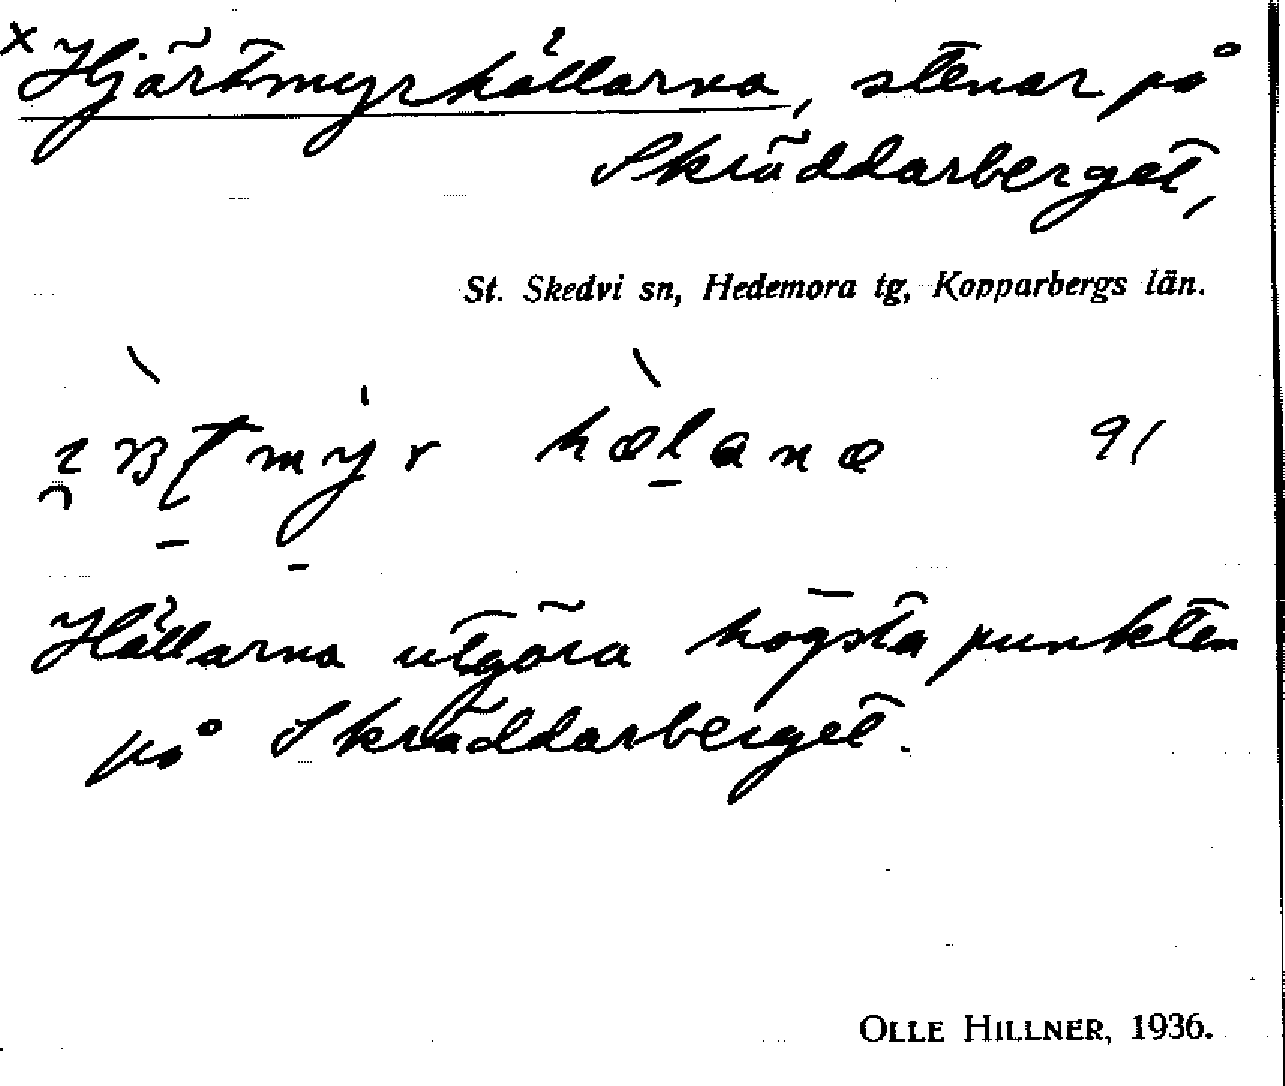 x Hjärtmyrhällarna, stenar på
Skräddarberget,
St. Skedvi sn, Hedemora tg, Kopparbergs län.
91
Hällarna utgöra högsta punkten
på Skräddarberget.
OLLE HILLNER, 1936.